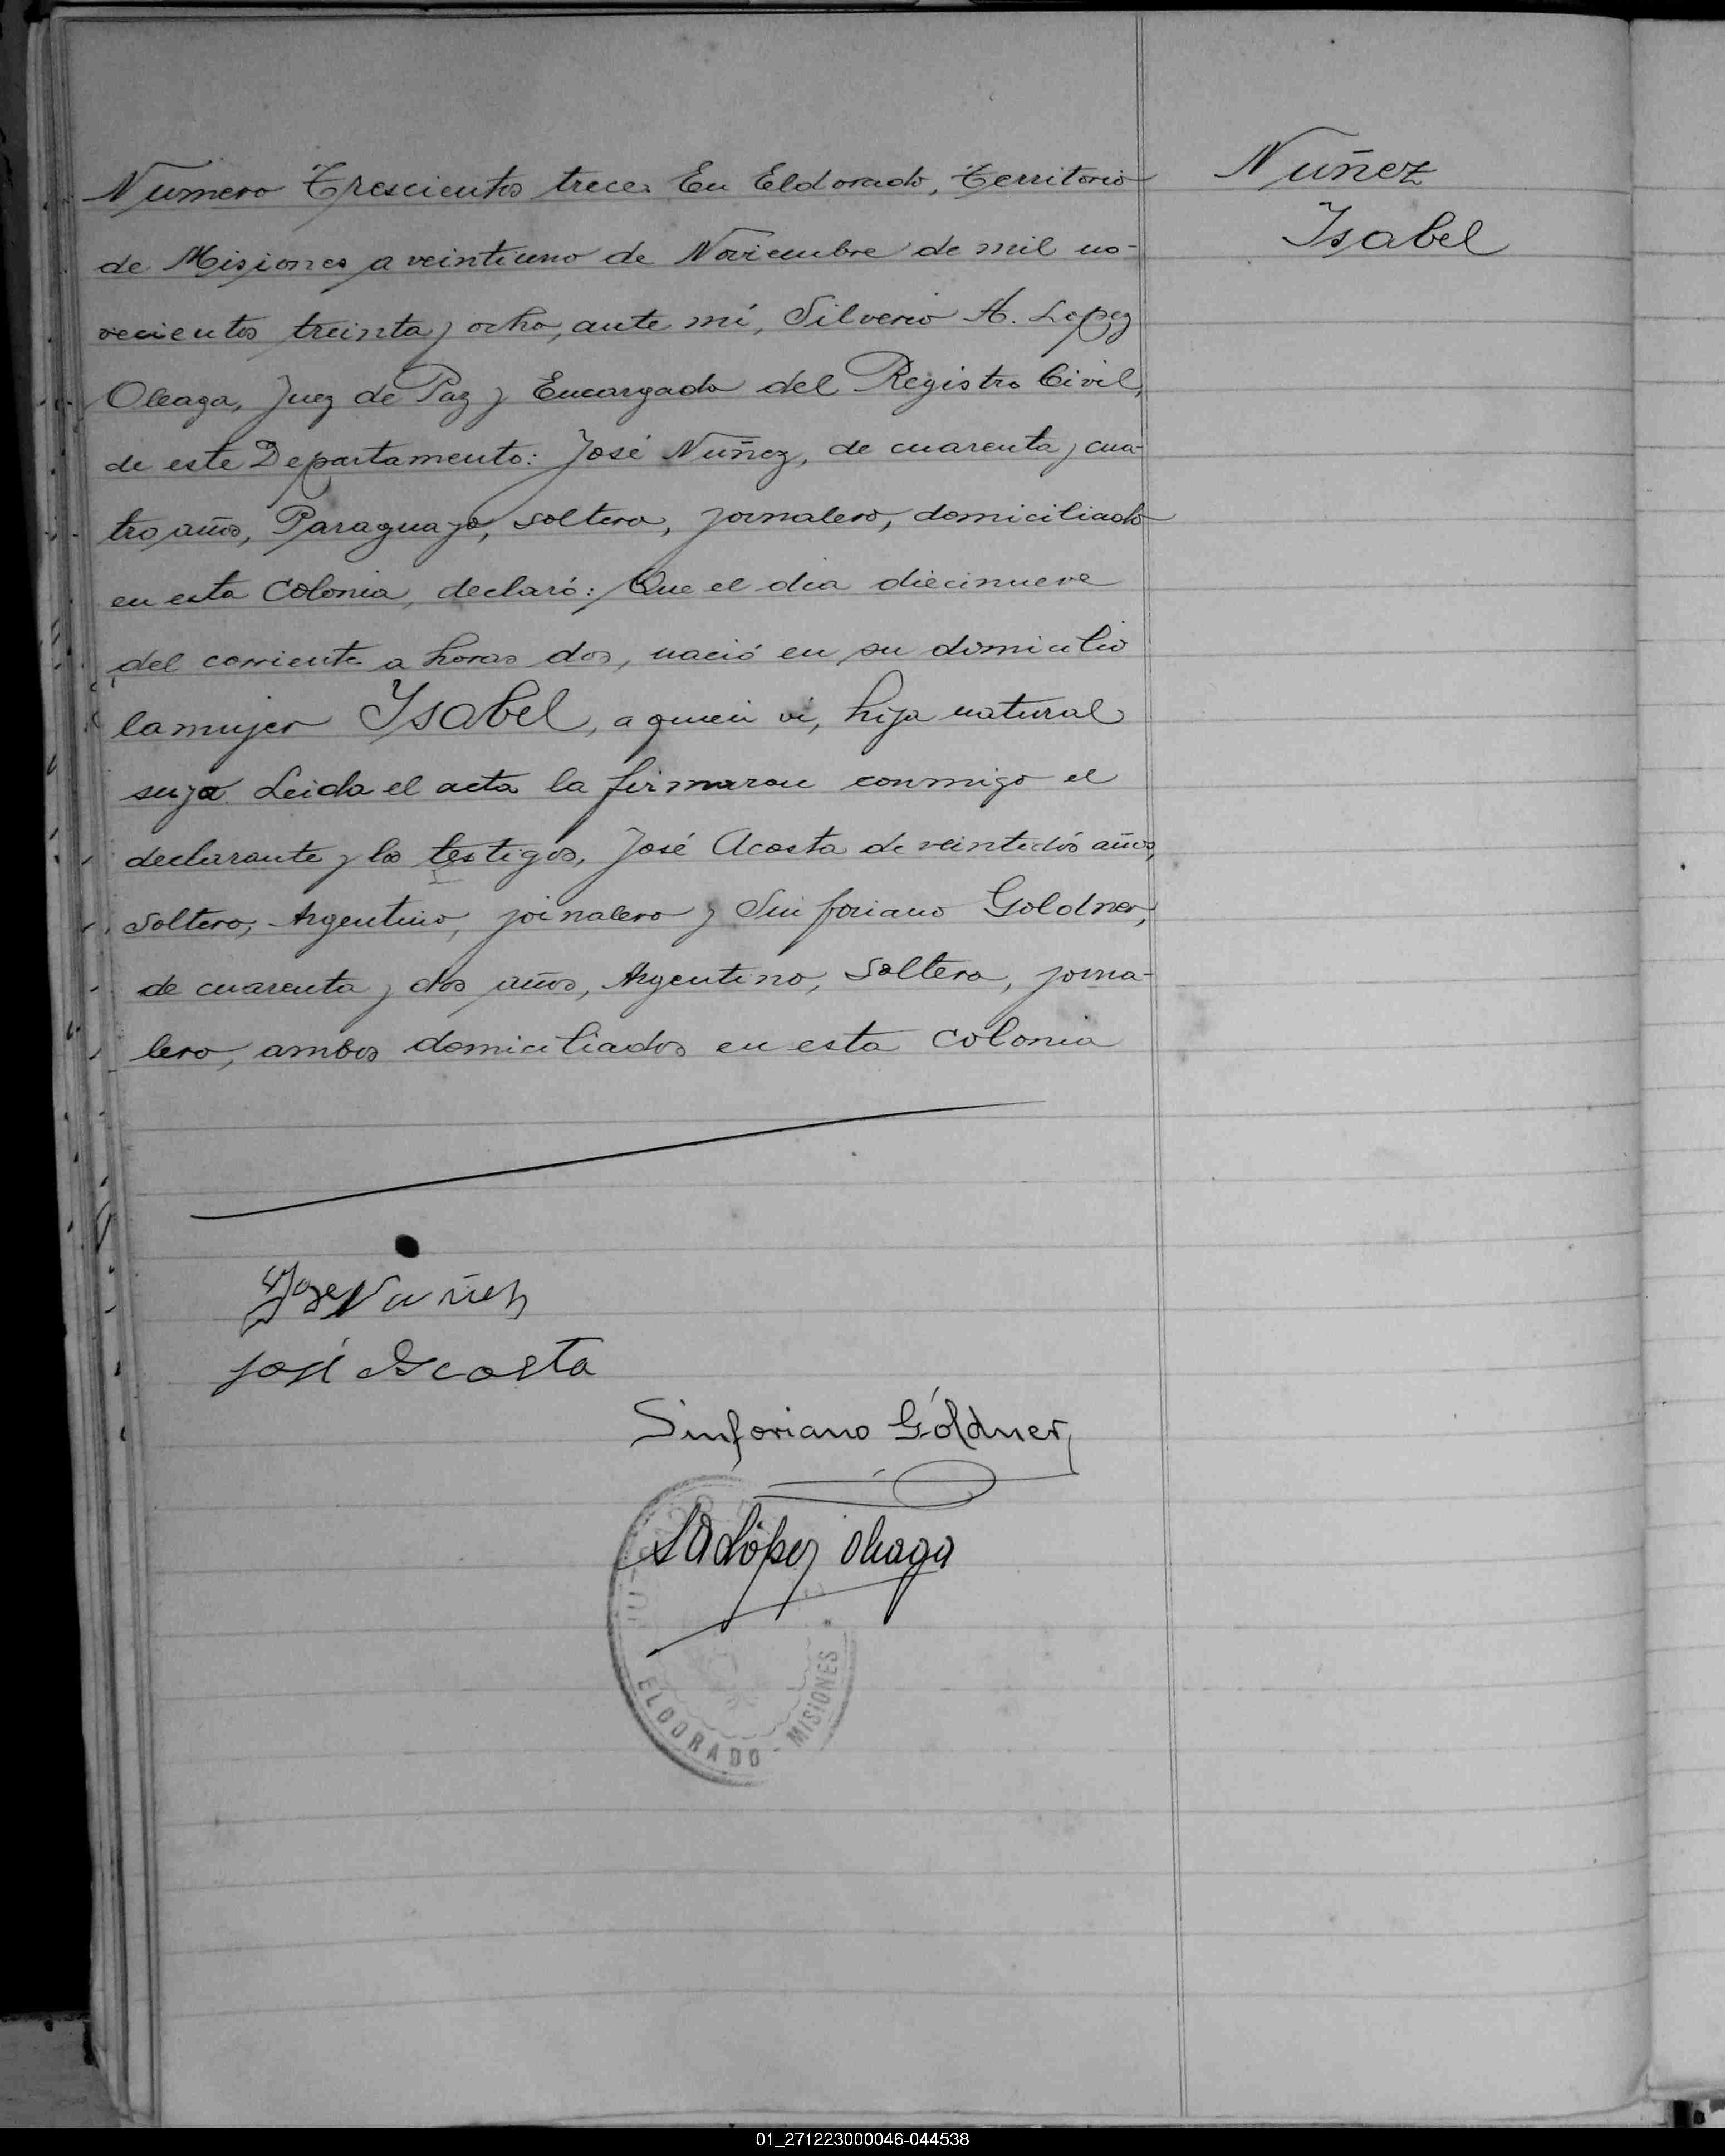 Numero Trescientos trece. En Eldorado, Territorio
de Misiones a veintiuno de Noviembre de mil no-
vecientos treinta y ocho, ante mí, Silverio A. Lopez
Oleaga, Juez de Paz y Encargado del Registro Civil,
de este Departamento: José Nuñez, de cuarenta y cua-
tro años, Paraguayo, soltero, jornalero, domiciliado
en esta Colonia, declaró: Que el dia diecinueve
del corriente a horas dos, nació en su domicilio
la mujer Ysabel, a quien vi, hija natural
suya. Leida el acta la firmaron conmigo el
declarante y los testigos, José Acosta de veintidós años,
soltero, Argentino, jornalero y Sinforiano Goldner,
de cuarenta y dos años, Argentino, soltero, jorna-
lero, ambos domiciliados en esta colonia
Nuñez
Ysabel
Jose Nuñez
José Acosta
Sinforiano Góldner
SALópez Oleaga
ELDORADO - MISIONES
01_271223000046-044538